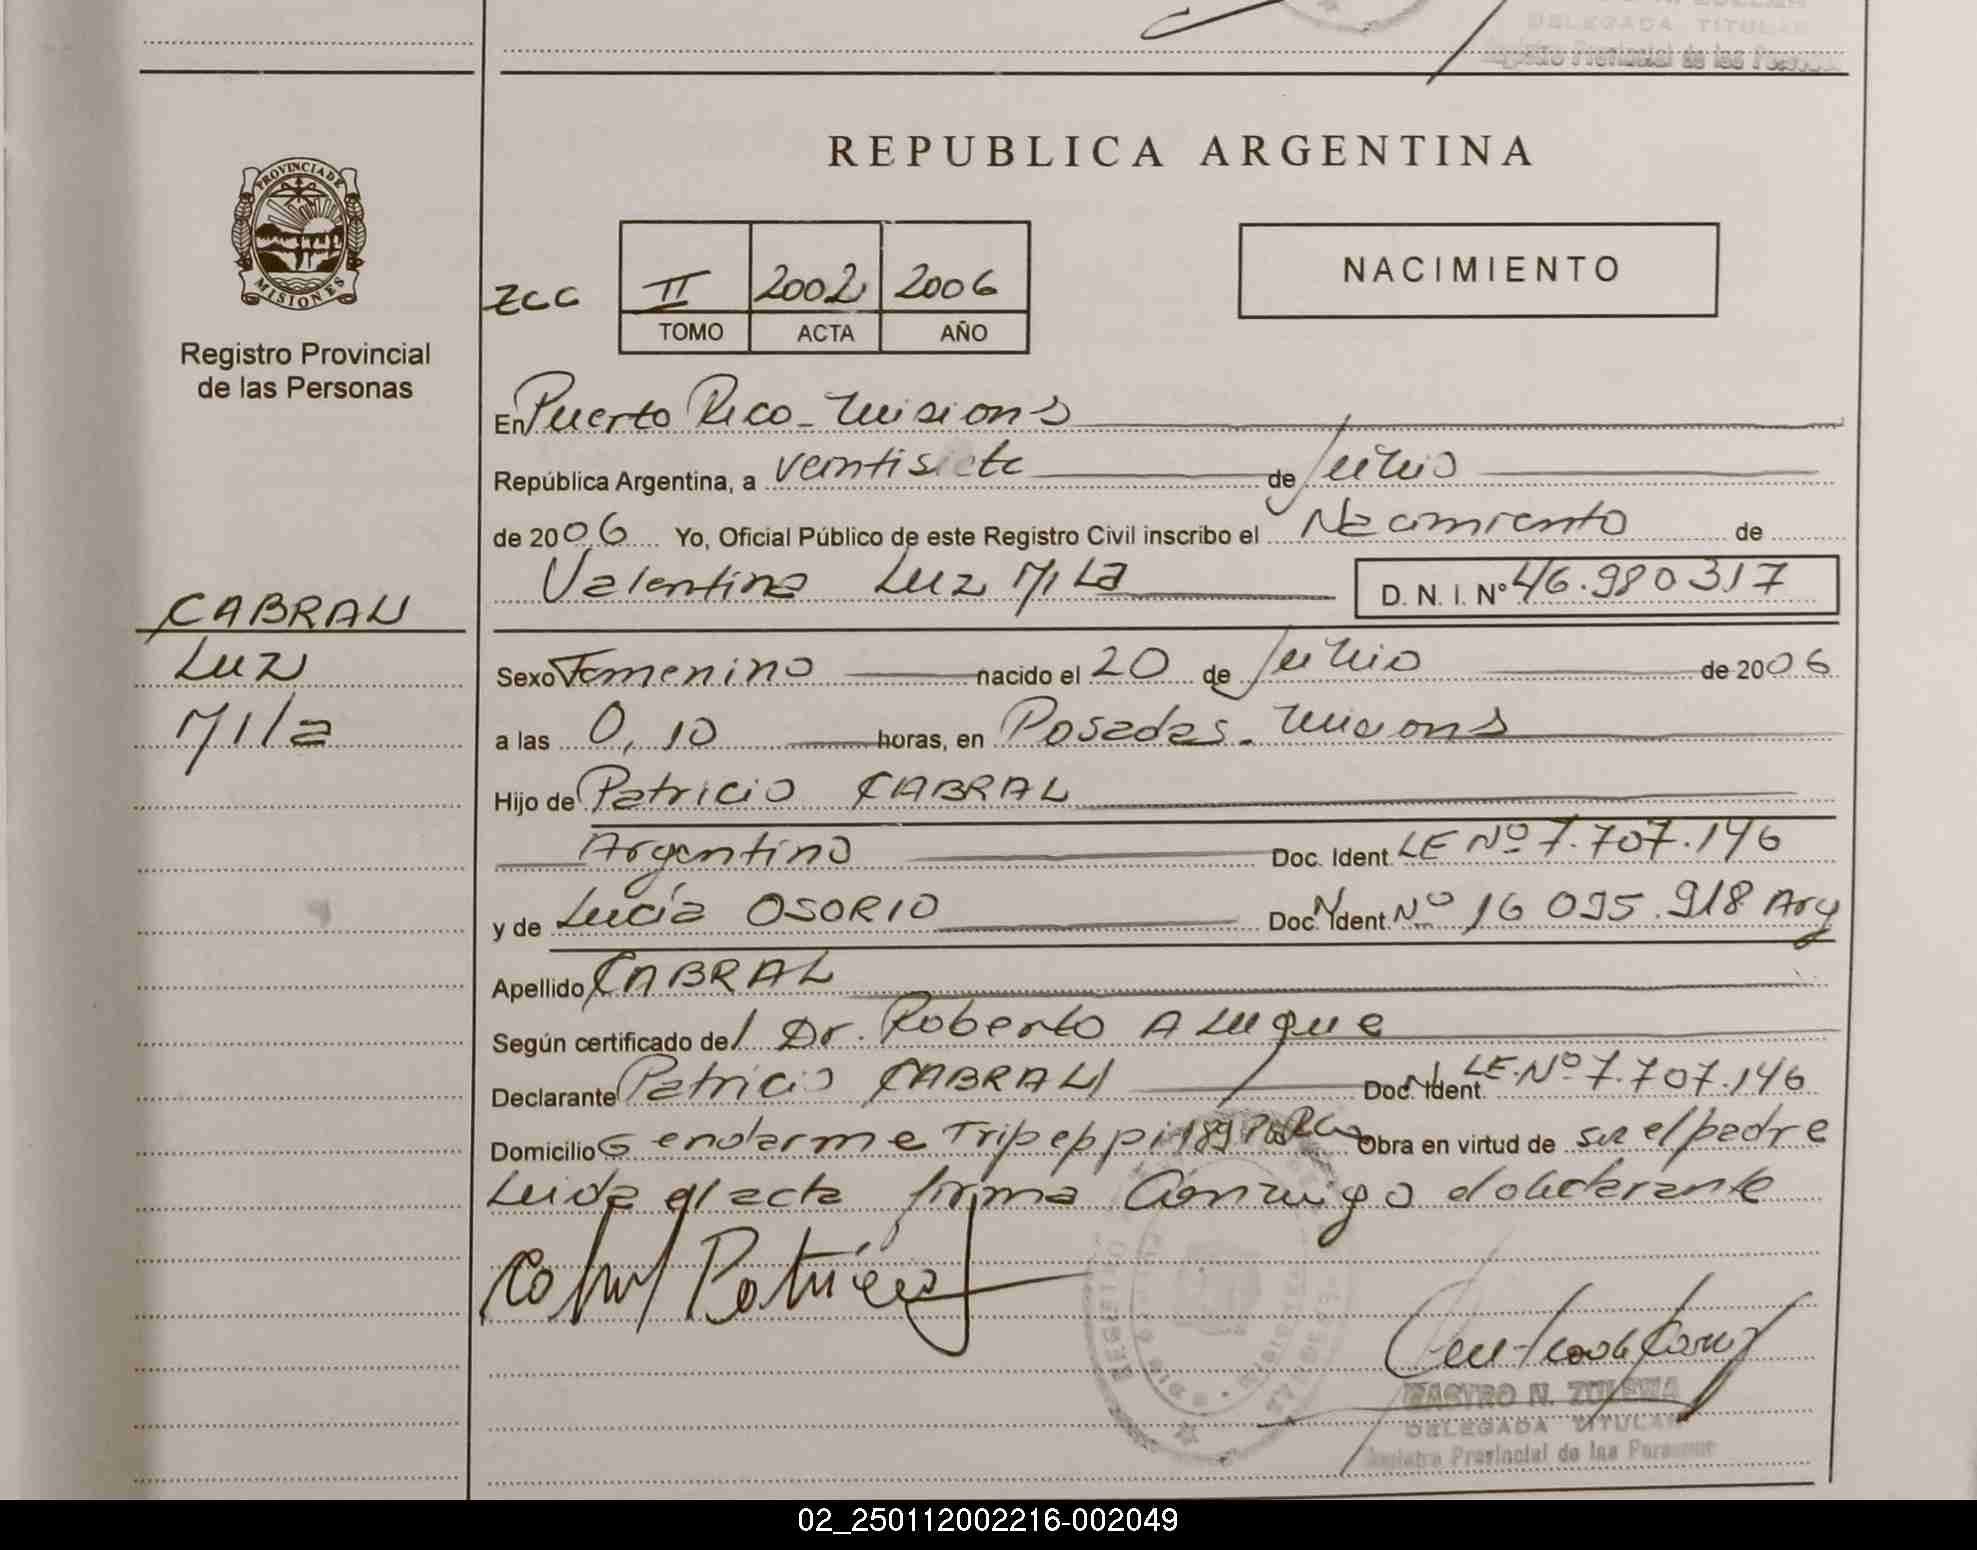 DELEGADA TITULAR
Registro Provincial de las Personas
PROVINCIA DE
MISIONES
Registro Provincial
de las Personas
REPUBLICA ARGENTINA
II 2002 2006
TOMO ACTA AÑO
NACIMIENTO
En Puerto Rico - Misions
República Argentina, a veintisiete de Junio
de 2006 Yo, Oficial Público de este Registro Civil inscribo el Nacimiento de
Valentina Luz Mila D. N. I. Nº 46.980317
CABRAL
Luz
Mila
Sexo Femenino nacido el 20 de Junio de 2006
a las 0,10 horas, en Posadas - Misions
Hijo de Patricio CABRAL
Argentino Doc. Ident. LE Nº 7.707.146
y de Lucía OSORIO Doc. Ident. Nº 16 095.918 Arg
Apellido CABRAL
Según certificado del Dr. Roberto A Luque
Declarante Patricio CABRAL Doc. Ident. LE. Nº 7.707.146
Domicilio Gendarme Tripeppi 189 Obra en virtud de ser el padre
Leida el acta firma Conmigo el declarante
CASTRO N. ZULEMA
DELEGADA TITULAR
Registro Provincial de las Personas
02_250112002216-002049